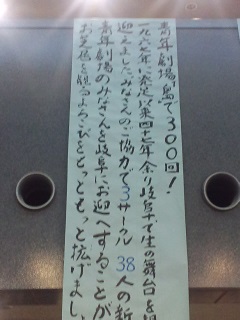 青年劇場鳥で300回!
一九六七年に発足以来四十七年余り岐阜で生の舞台を
迎えました。みなさんのご協力で3サークル38人の新
青年劇場のみなさんを岐阜にお迎えすることが
お芝居を観るよろこびをもっともっと拡げまし